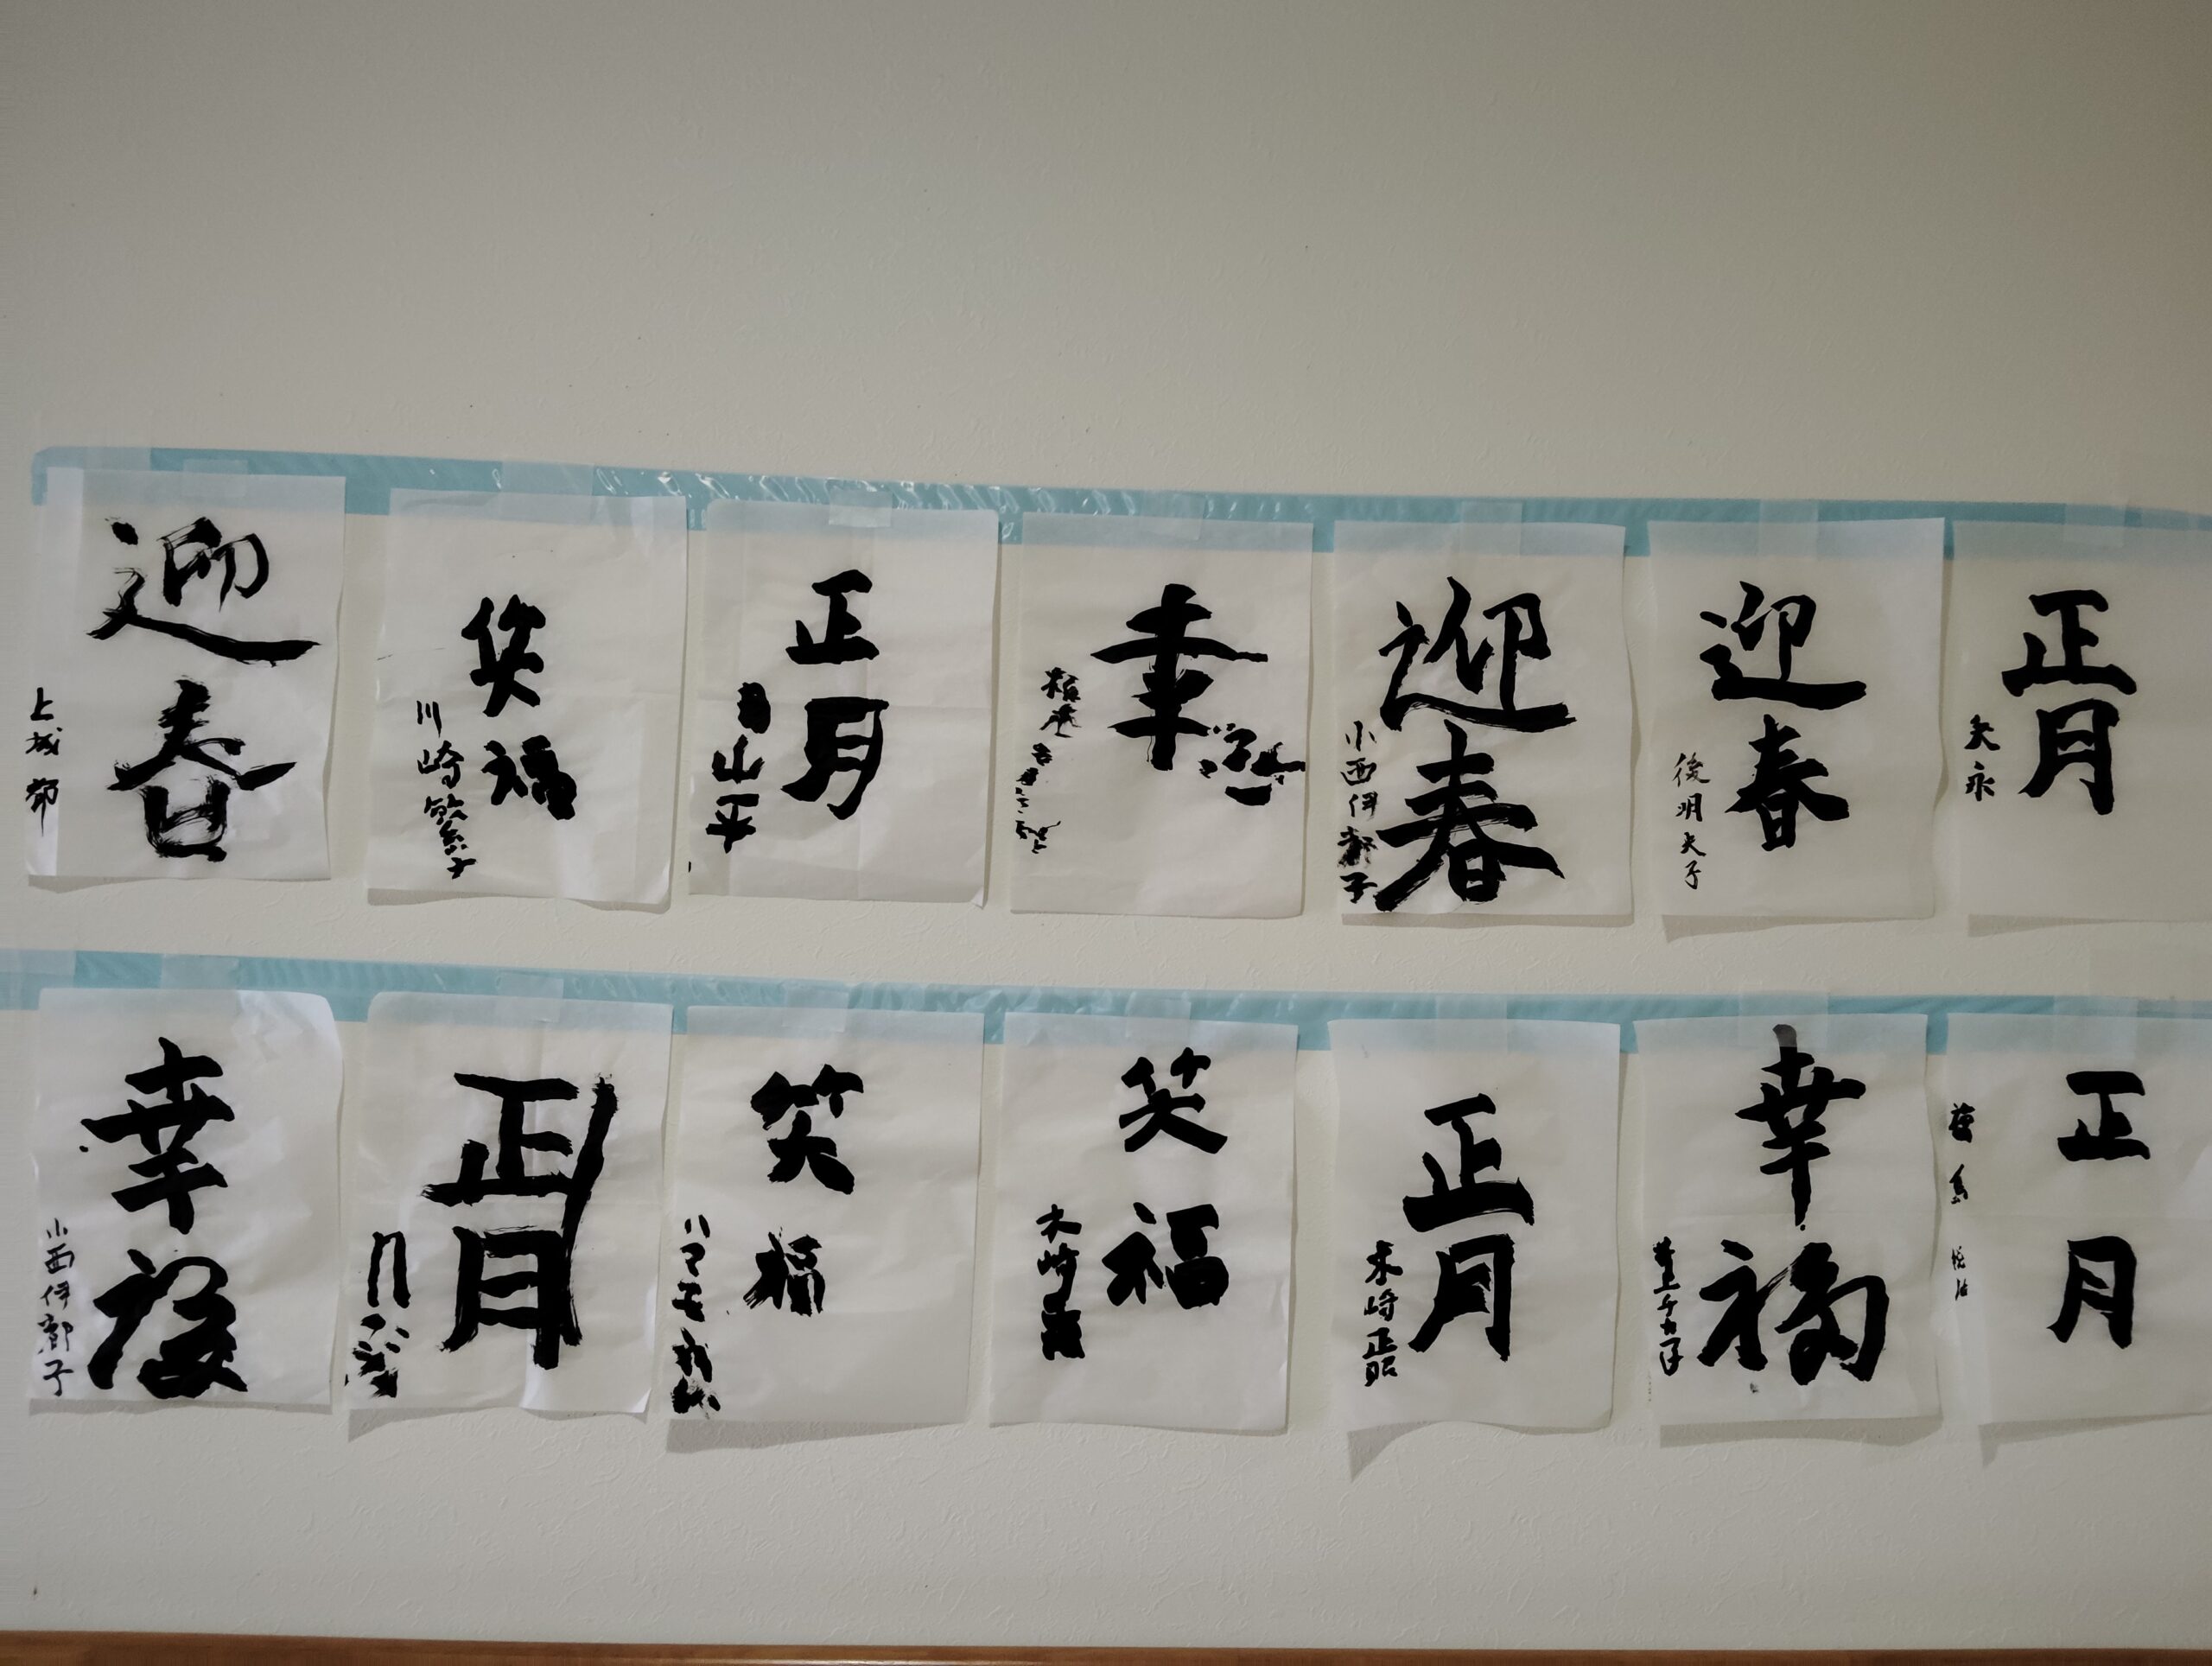 迎春
上城 郁
笑福
川崎繁子
正月
山平
幸
迎春
小西伊都子
迎春
後明夫子
正月
夫永
幸福
小西伊都子
正月
笑福
ハマモ
笑福
木崎
正月
木崎正昭
幸福
井上チカ子
正月